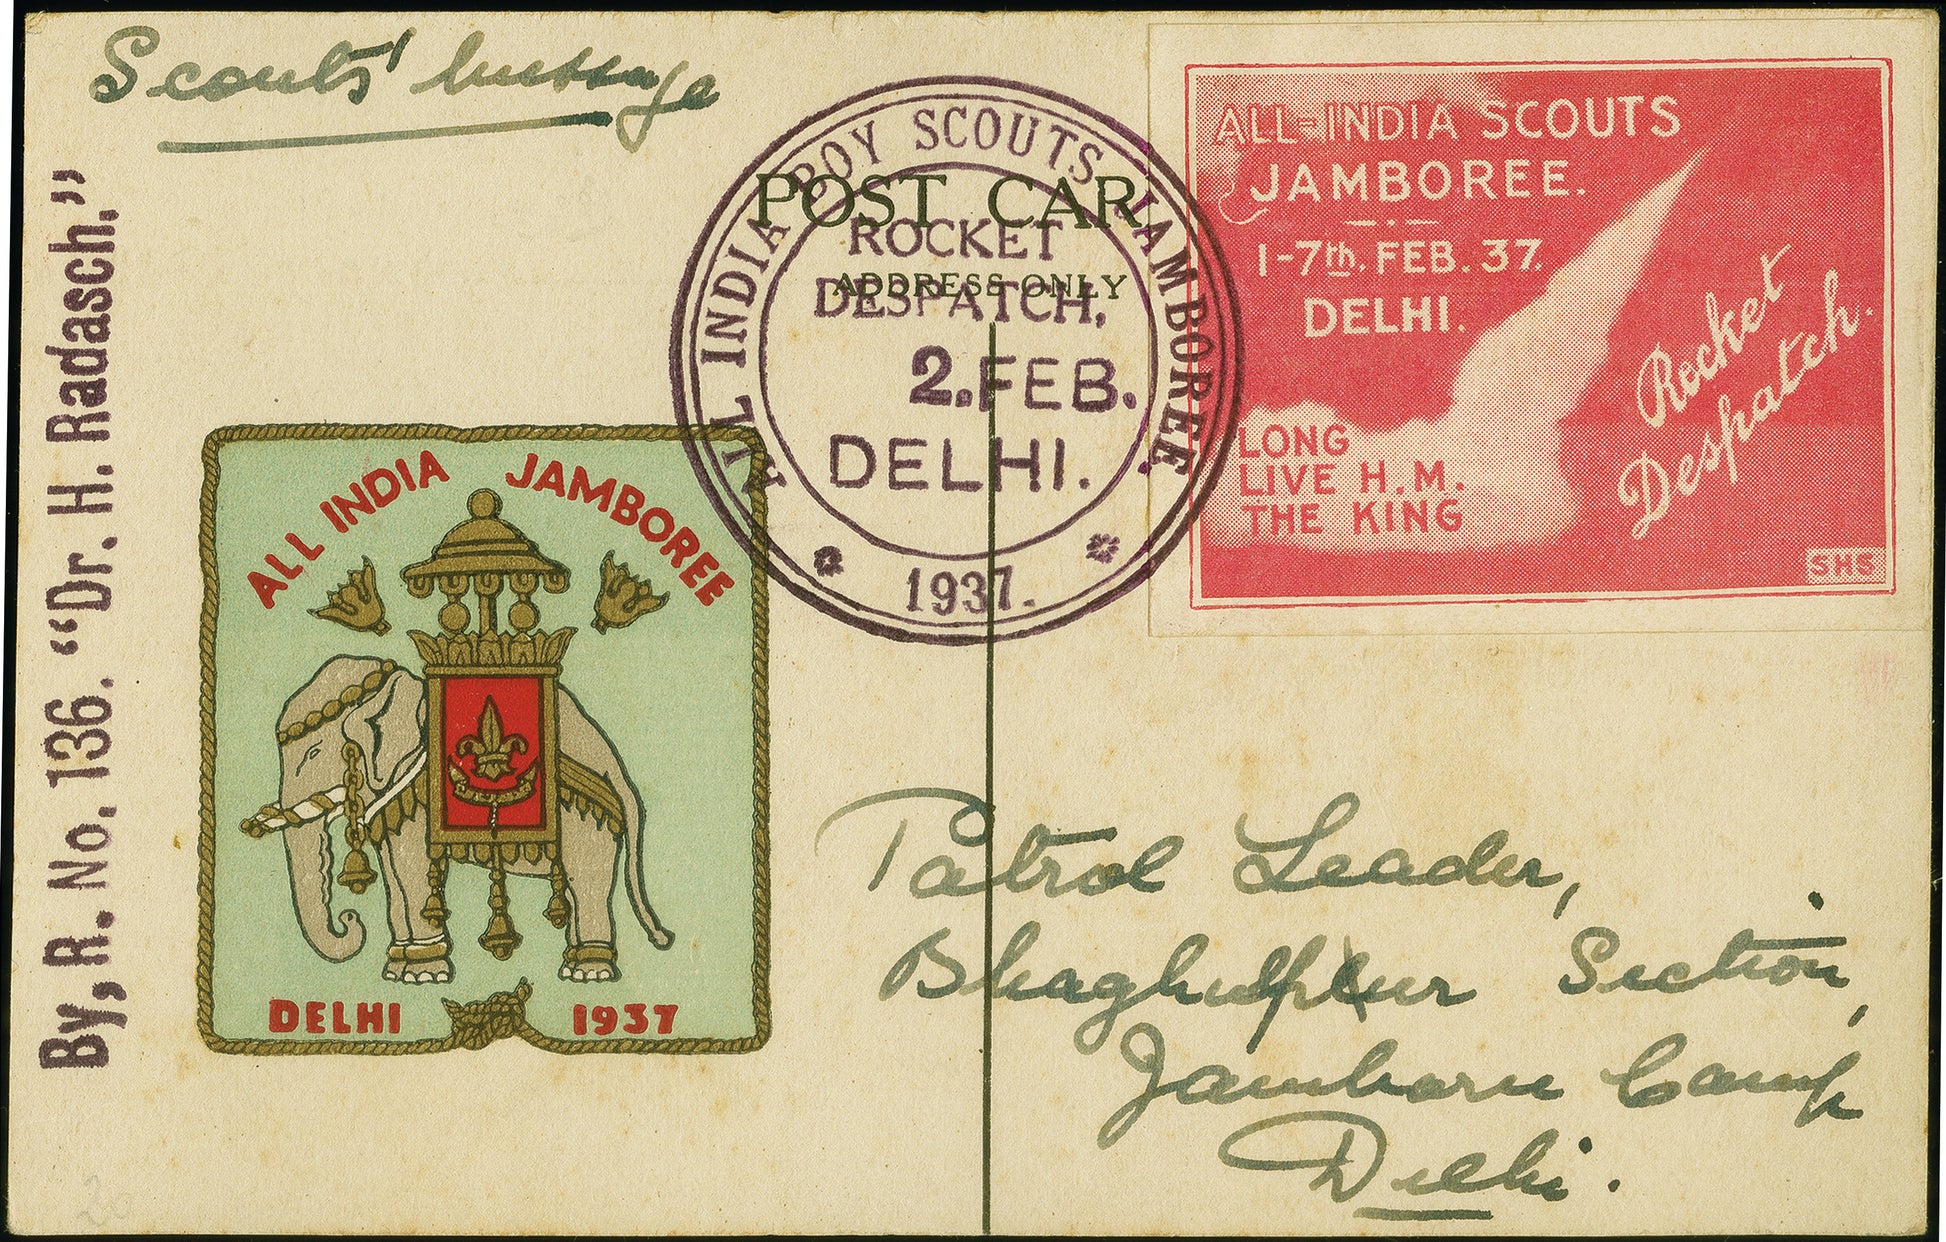 Scouts' message
By, R. No. 136. "Dr. H. Radasch."
ALL INDIA BOY SCOUTS JAMBOREE
1937.
POST CAR
ROCKET
ADDRESS ONLY
DESPATCH,
2. FEB.
DELHI.
ALL-INDIA SCOUTS
JAMBOREE.
1-7th. FEB. 37.
DELHI.
Rocket
Despatch.
LONG
LIVE H.M.
THE KING
SHS
ALL INDIA JAMBOREE
DELHI 1937
Patrol Leader,
Section,
Jamboree Camp
Delhi.